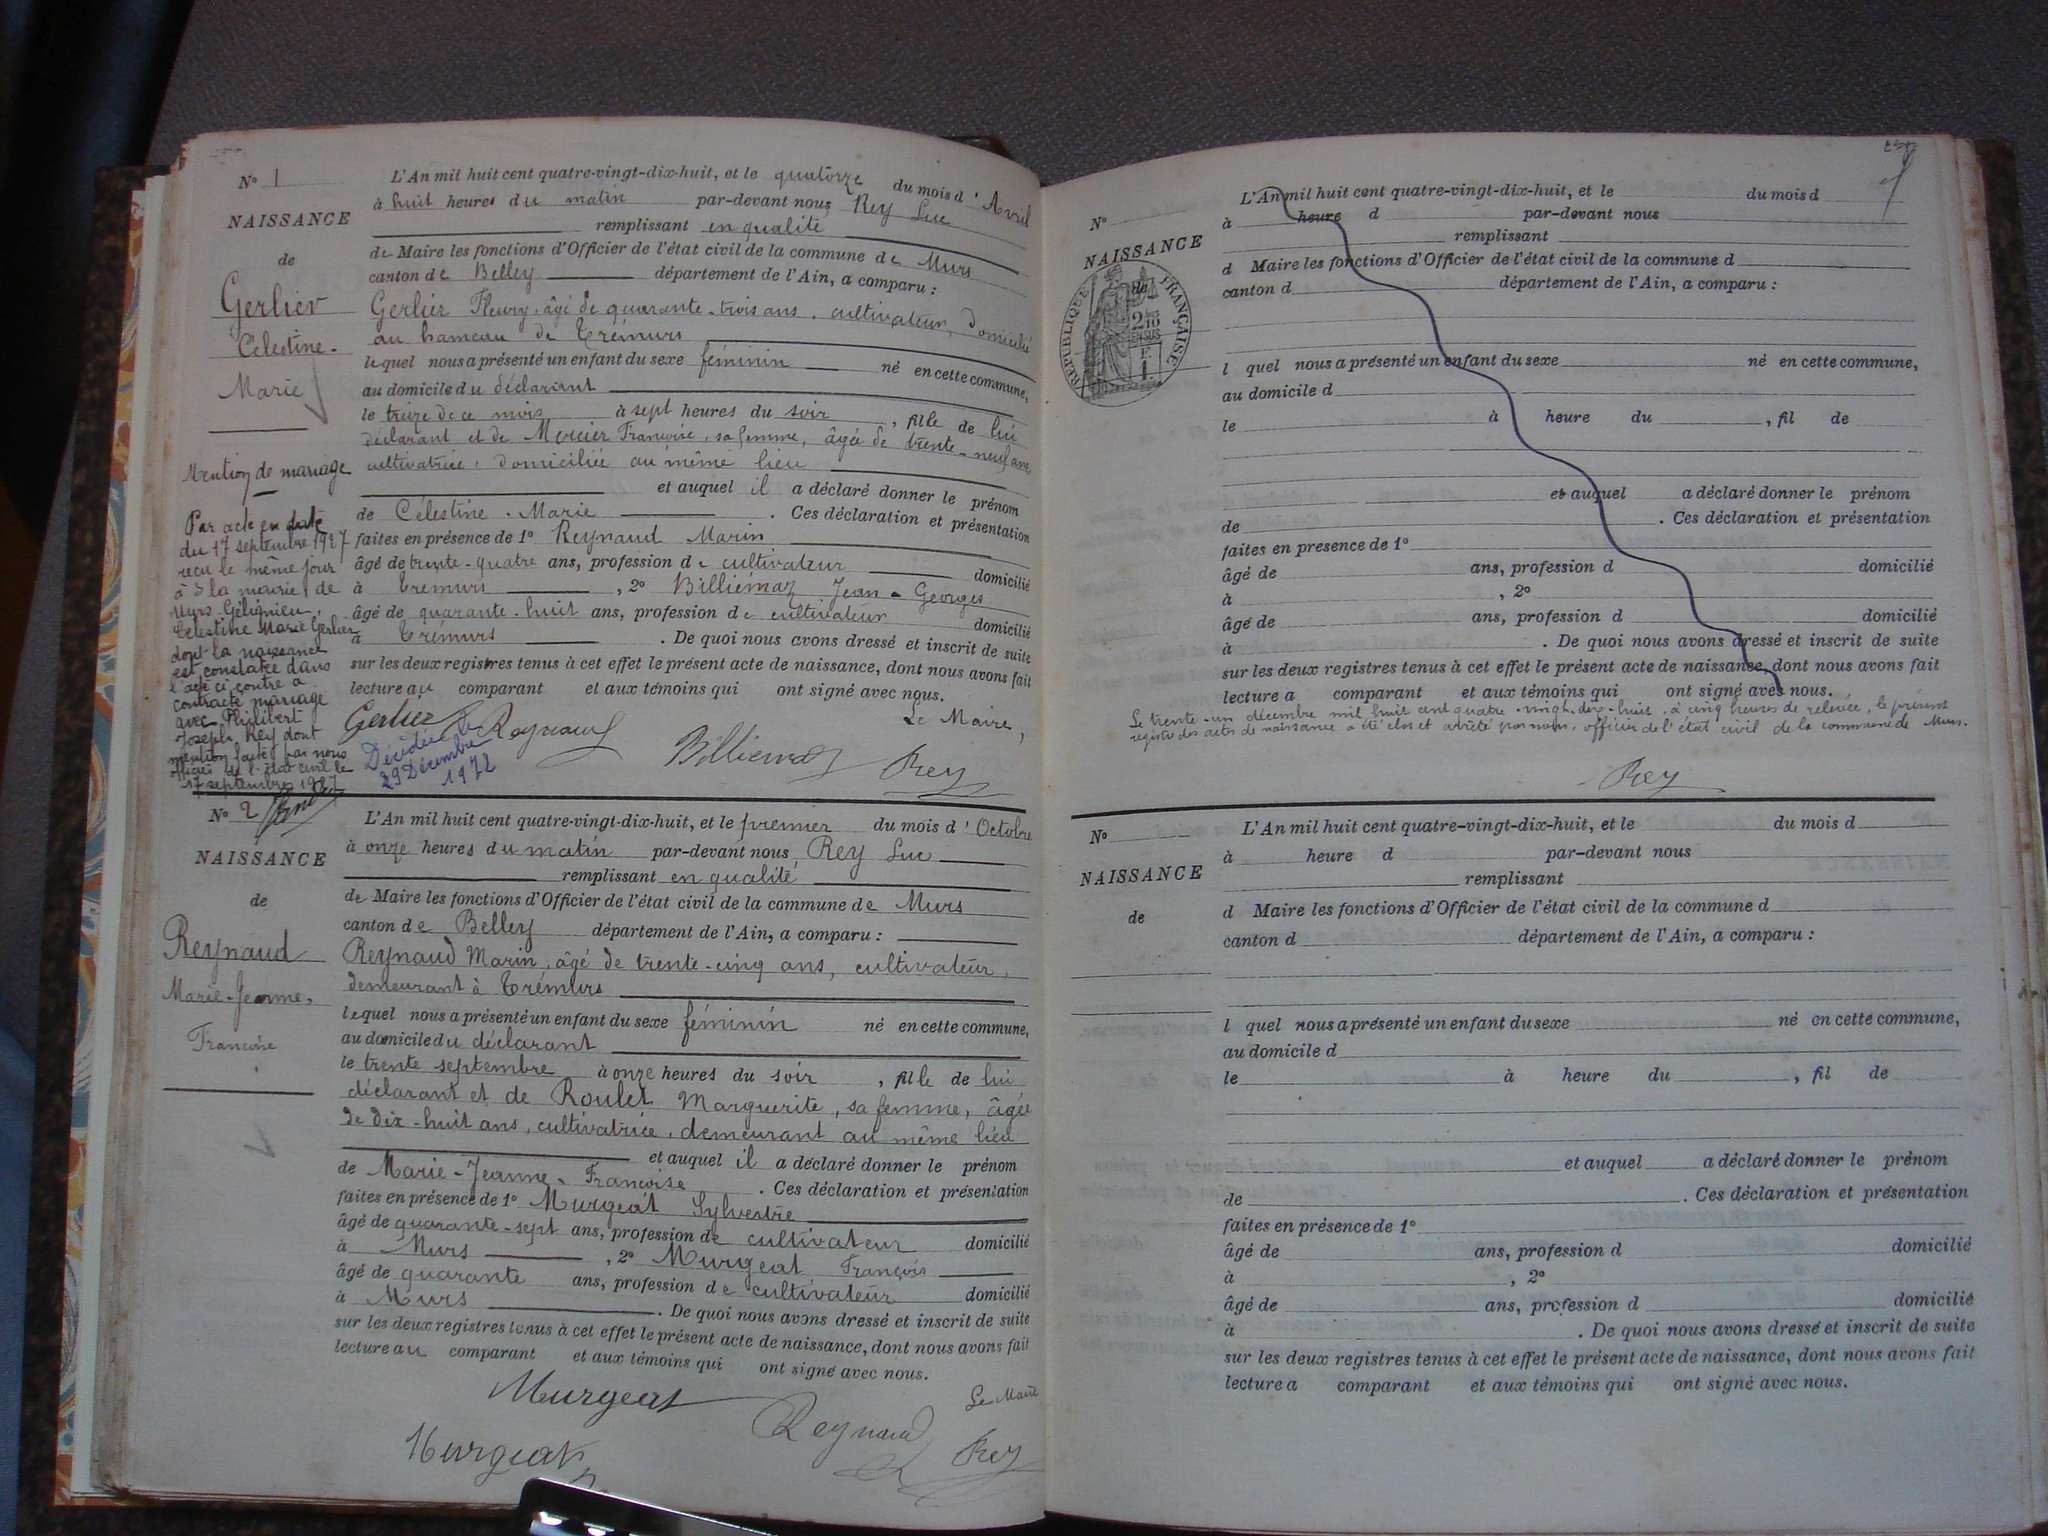 N° 1
NAISSANCE
de
Gerlier
Célestine-
Marie
Mention de mariage
Par acte en date
du 17 septembre 1927
reçu le même jour
à la mairie de
Murs-Gélignieu,
Célestine Marie Gerlier
dont la naissance
est constatée dans
l'acte ci contre a
contracté mariage
avec Philibert
Joseph Rey dont
mention faite par nous
officier de l'état civil le
17 septembre 1927
L'An mil huit cent quatre-vingt-dix-huit, et le quatorze du mois d'Avril
à huit heures du matin par-devant nous Rey Luc
remplissant en qualité
de Maire les fonctions d'Officier de l'état civil de la commune de Murs
canton de Belley département de l'Ain, a comparu :
Gerlier Fleury, âgé de quarante-trois ans, cultivateur, domicilié
au hameau de Trémurs
lequel nous a présenté un enfant du sexe féminin né en cette commune,
au domicile du déclarant
le treize de ce mois à sept heures du soir, fille de lui
déclarant et de Mercier Françoise, sa femme, âgée de trente-neuf ans
cultivatrice, domiciliée au même lieu
et auquel il a déclaré donner le prénom
de Célestine-Marie. Ces déclaration et présentation
faites en présence de 1° Reynaud Marin
âgé de trente-quatre ans, profession de cultivateur domicilié
à Trémurs, 2° Billiémaz Jean-Georges
âgé de quarante-huit ans, profession de cultivateur domicilié
à Trémurs. De quoi nous avons dressé et inscrit de suite
sur les deux registres tenus à cet effet le présent acte de naissance, dont nous avons fait
lecture au comparant et aux témoins qui ont signé avec nous.
Le Maire,
Gerlier Reynaud
Billiemaz Rey
Décédée le
29 Décembre
1972
N° 2
NAISSANCE
de
Reynaud
Marie-Jeanne-
Françoise
L'An mil huit cent quatre-vingt-dix-huit, et le premier du mois d'Octobre
à onze heures du matin par-devant nous, Rey Luc
remplissant en qualité
de Maire les fonctions d'Officier de l'état civil de la commune de Murs
canton de Belley département de l'Ain, a comparu :
Reynaud Marin, âgé de trente-cinq ans, cultivateur,
demeurant à Trémurs
lequel nous a présenté un enfant du sexe féminin né en cette commune,
au domicile du déclarant
le trente septembre à onze heures du soir, fille de lui
déclarant et de Roulet Marguerite, sa femme, âgée
de dix-huit ans, cultivatrice, demeurant au même lieu
et auquel il a déclaré donner le prénom
de Marie-Jeanne-Françoise. Ces déclaration et présentation
faites en présence de 1° Murgeat Sylvestre
âgé de quarante-sept ans, profession de cultivateur domicilié
à Murs, 2° Murgeat François
âgé de quarante ans, profession de cultivateur domicilié
à Murs. De quoi nous avons dressé et inscrit de suite
sur les deux registres tenus à cet effet le présent acte de naissance, dont nous avons fait
lecture au comparant et aux témoins qui ont signé avec nous.
Murgeat Le Maire
Murgeat Reynaud Rey
N°
NAISSANCE
de
RÉPUBLIQUE FRANÇAISE
L'An mil huit cent quatre-vingt-dix-huit, et le du mois d
à heure d par-devant nous
remplissant
d Maire les fonctions d'Officier de l'état civil de la commune d
canton d département de l'Ain, a comparu :
l quel nous a présenté un enfant du sexe né en cette commune,
au domicile d
le à heure du , fil de
et auquel a déclaré donner le prénom
de . Ces déclaration et présentation
faites en presence de 1°
âgé de ans, profession d domicilié
à , 2°
âgé de ans, profession d domicilié
à . De quoi nous avons dressé et inscrit de suite
sur les deux registres tenus à cet effet le présent acte de naissance, dont nous avons fait
lecture a comparant et aux témoins qui ont signé avec nous.
Le trente-un décembre mil huit cent quatre-vingt-dix-huit, à cinq heures de relevée, le présent
registre des actes de naissance a été clos et arrêté par nous, officier de l'état civil de la commune de Murs.
Rey
N°
NAISSANCE
de
L'An mil huit cent quatre-vingt-dix-huit, et le du mois d
à heure d par-devant nous
remplissant
d Maire les fonctions d'Officier de l'état civil de la commune d
canton d département de l'Ain, a comparu :
l quel nous a présenté un enfant du sexe né en cette commune,
au domicile d
le à heure du , fil de
et auquel a déclaré donner le prénom
de . Ces déclaration et présentation
faites en présence de 1°
âgé de ans, profession d domicilié
à , 2°
âgé de ans, profession d domicilié
à . De quoi nous avons dressé et inscrit de suite
sur les deux registres tenus à cet effet le présent acte de naissance, dont nous avons fait
lecture a comparant et aux témoins qui ont signé avec nous.